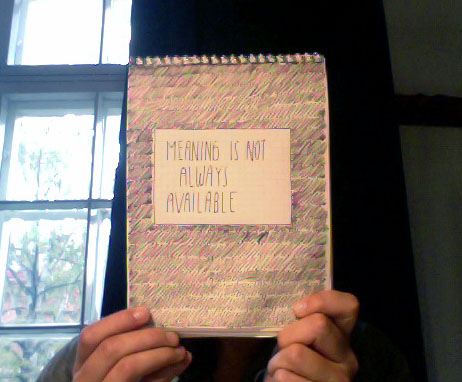 MEANING IS NOT
ALWAYS
AVAILABLE